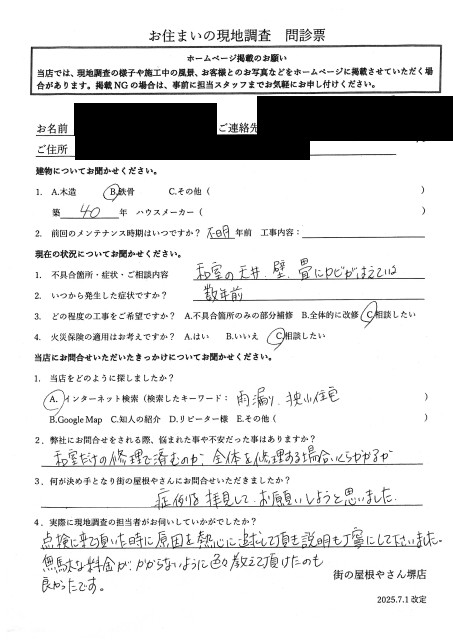 お住まいの現地調査　問診票
ホームページ掲載のお願い
当店では、現地調査の様子や施工中の風景、お客様とのお写真などをホームページに掲載させていただく場
合があります。掲載NGの場合は、事前に担当スタッフまでお気軽にお申し付けください。
お名前　ご連絡先
ご住所
建物についてお聞かせください。
1. A.木造　B.鉄骨　C.その他（　）
築 40 年　ハウスメーカー（　）
2. 前回のメンテナンス時期はいつですか？ 不明 年前　工事内容：
現在の状況についてお聞かせください。
1. 不具合箇所・症状・ご相談内容　和室の天井、壁、畳にカビがはえている
2. いつから発生した症状ですか？　数年前
3. どの程度の工事をご希望ですか？ A.不具合箇所のみの部分補修　B.全体的に改修　C.相談したい
4. 火災保険の適用はお考えですか？ A.はい　B.いいえ　C.相談したい
当店にお問合せいただいたきっかけについてお聞かせください。
1. 当店をどのように探しましたか？
A. インターネット検索（検索したキーワード： 雨漏り、狭小住宅　）
B.Google Map　C.知人の紹介　D.リピーター様　E.その他（　）
2. 弊社にお問合せをされる際、悩まれた事や不安だった事はありますか？
和室だけの修理で済むのか、全体を修理する場合いくらかかるか
3. 何が決め手となり街の屋根やさんにお問合せいただきましたか？
症例を拝見して、お願いしようと思いました。
4. 実際に現地調査の担当者がお伺いしていかがでしたか？
点検に来て頂いた時に原因を熱心に追求して頂き説明も丁寧にして下さいました。
無駄な料金がかからないように色々教えて頂けたのも
良かったです。
街の屋根やさん堺店
2025.7.1 改定